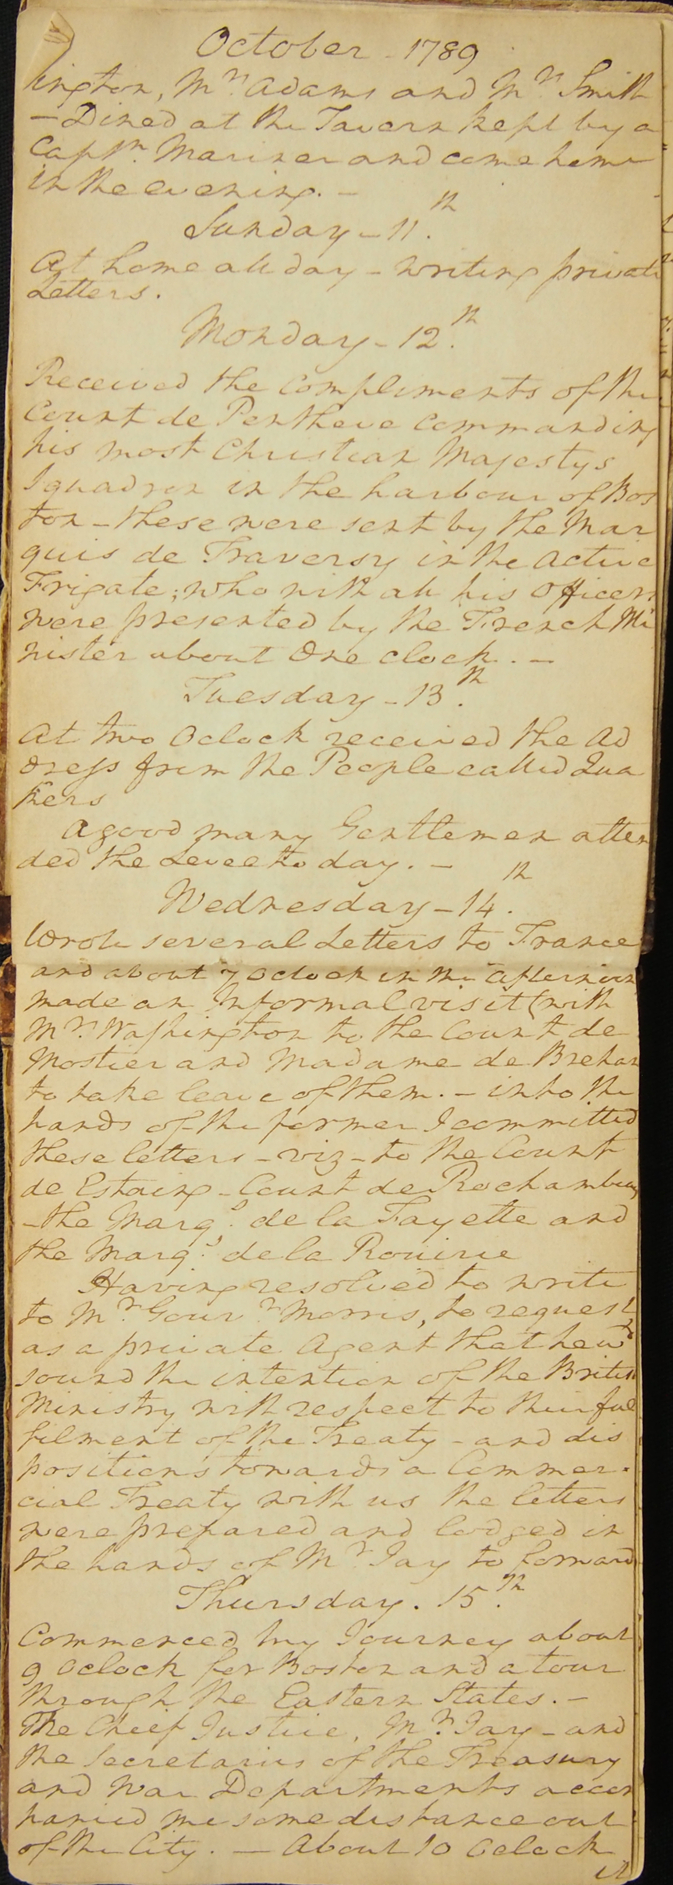 October - 1789
ington, Mrs. Adams and Mrs. Smith
- Dined at the Tavern kept by a
Captn. Mariner and came home
in the evening. -
Sunday - 11.th
At home all day - writing private
Letters.
Monday - 12.th
Received the compliments of the
Count de Pentheve commanding
his most Christian Majestys
Squadron in the harbour of Bos
ton - these were sent by the Mar
quis de Traversy in the Active
Frigate; who with all his Officers
were presented by the French Mi
nister about One clock. -
Tuesday - 13.th
At two Oclock received the Ad
dress from the People called Qua
kers
A good many Gentlemen atten
ded the Levee to day. -
Wednesday - 14.th
Wrote several Letters to France
and about 7 Oclock in the afternoon
made an Informal visit (with
Mrs. Washington to the Count de
Mostier and Madame de Brehan
to take leave of them. - into the
hands of the former I committed
these letters - viz - to the Count
de Estaing - Count de Rochambeau
- the Marqs. de la Fayette and
the Marqs. de la Rouirie
Having resolved to write
to Mr. Gouvr. Morris, to request
as a private Agent that he wd.
sound the intention of the British
Ministry with respect to their ful
filment of the Treaty - and dis
positions towards a Commer-
cial Treaty with us the letters
were prepared and lodged in
the hands of Mr. Jay to forward
Thursday. 15.th
Commenced my Journey about
9 Oclock for Boston and a tour
through the Eastern States. -
The Chief Justice, Mr. Jay - and
the Secretaries of the Treasury
and War Departments accom
panied me some distance out
of the City. - About 10 Oclock
it